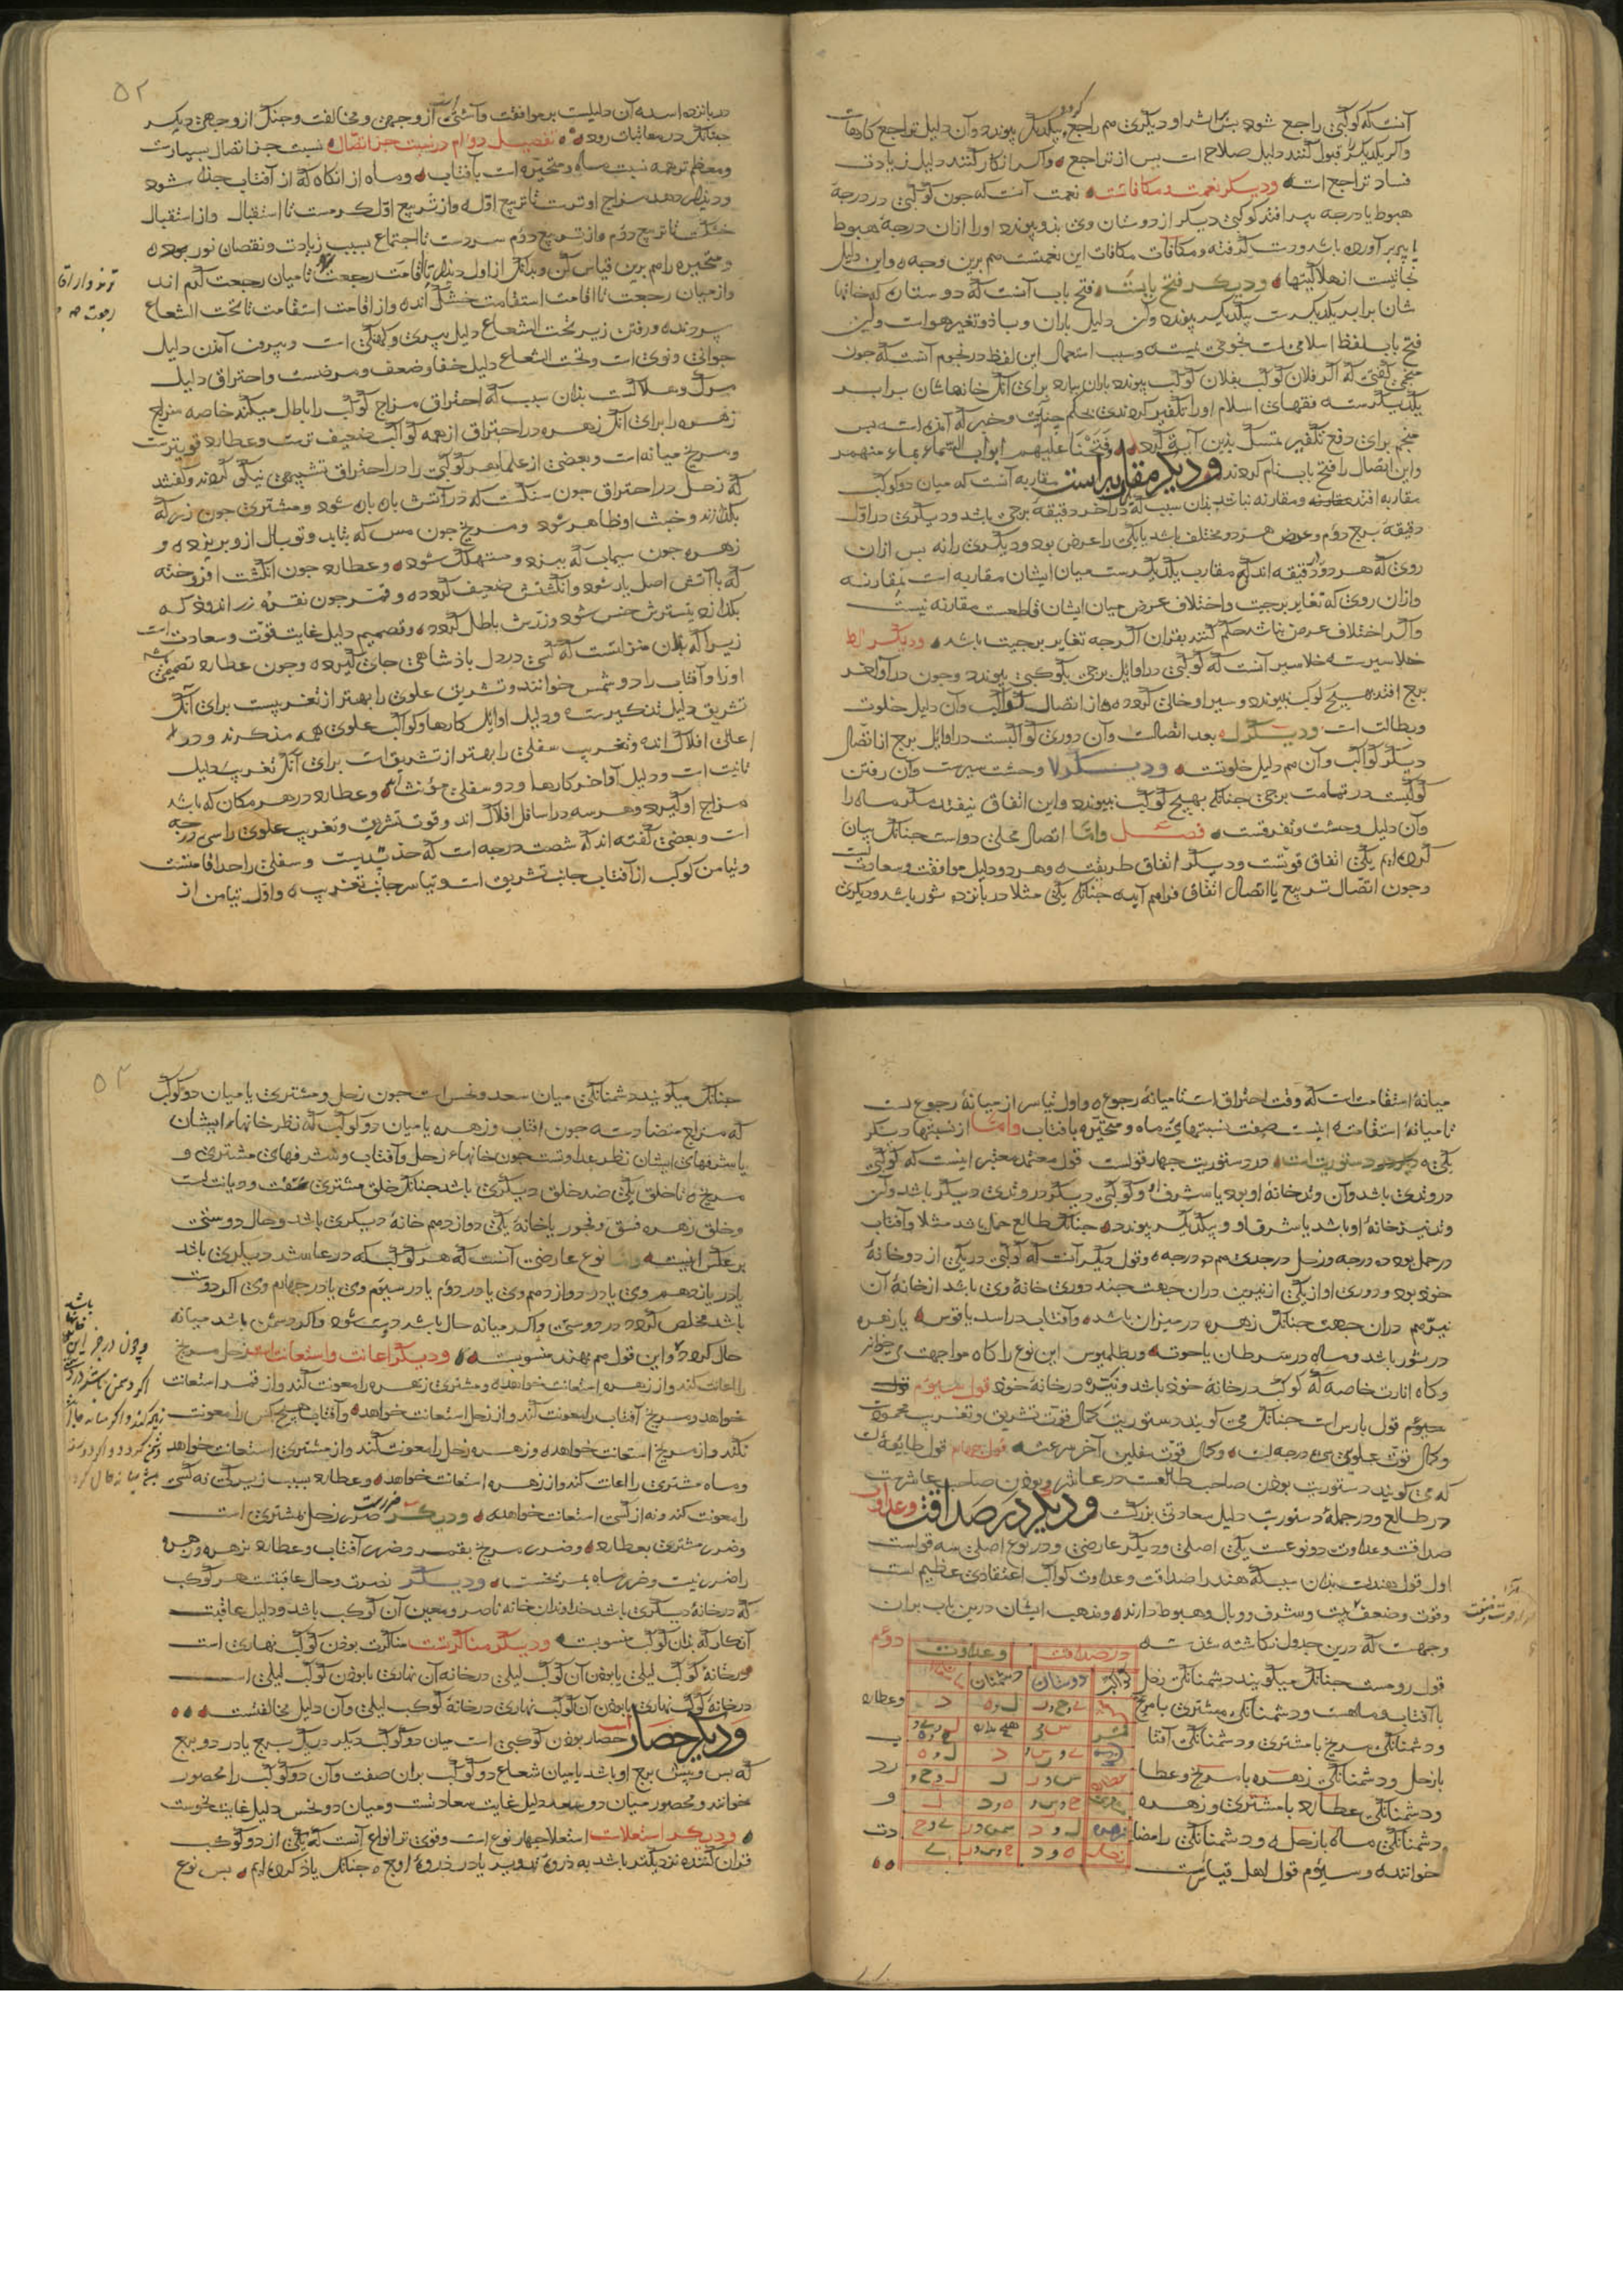 آنست که کوکبی راجع شود پس باشد او دیگری هم راجع بیکدیگر پیوندد وآن دلیل تراجع کارهاست
واکر یکدیکر را قبول کنند دلیل صلاح است بس از تراجع واکر انکار کنند دلیل زیادت
فساد تراجع است ودیکر نعمت ومکافات نعمت آنست که جون کوکبی در درجهٔ
هبوط یا درجه بیر افتد کوکبی دیکر از دوستان وی بذو پیوندد اورا ازان درجهٔ هبوط
یا بیر بر آورده باشد ودست کرفته ومکافات مکافات این نعمتست هم برین وجه واین دلیل
نجاتست از هلاکیتها ودیکر فتح بابست فتح باب آنست که دو ستاره که خانها
شان برابر یکدیکرست بیکدیکر پیوندد وآن دلیل باران وباد وتغیر هواست ولکن
فتح باب لفظ اسلامی است نجومی نیست وسبب استعمال این لفظ در نجوم آنست که جون
منجمی کفتی که اکر فلان کوکب بفلان کوکب پیوندد باران بارد برای آنک خانهاشان برابر
یکدیکرست فقهای اسلام اورا تکفیر کردندی بحکم جنین وخبر که آمده است بس
منجم برای دفع تکفیر تمسک بدین آیة کرد فَفَتَحْنَا علیهم ابواب السماء بماء منهمر
واین اتصال را فتح باب نام کردند ودیکر مقاربه است مقاربه آنست که میان دو کوکب
مقاربه افتد ومقارنه نباشد بذان سبب که در آخر دقیقهٔ برجی باشد ودیکری در اول
دقیقهٔ برج دوم وعرض هر دو مختلف باشد یا یکی را عرض بود ودیکری را نه بس ازان
روی که هر دو در دقیقه اند که مقارب یکدیکرست میان ایشان مقاربه است نه مقارنه
وازان روی که تغایر برجیت واختلاف عرض میان ایشان قاطعست مقارنه نیست
واکر اختلاف عرض نباشد حکم کنند بقران اکر جه تغایر برجیت باشد ودیکر
خلا سیرست خلا سیر آنست که کوکبی در اوایل برجی بکوکبی پیوندد وجون در اواخر
برج افتد بهیج کوکب نپیوندد وسیر او خالی کردد از اتصال کواکب وآن دلیل خلوت
وبطالت است ودیکر بعد اتصالست وآن دوری کوکبست در اوایل برج از اتصال
دیکر کواکب وآن هم دلیل خلوتست ودیکر وحشت سیرست وآن رفتن
کوکبست در تمامت برجی جنانک بهیج کوکب نپیوندد واین اتفاق نیفتد مکر ماه را
وآن دلیل وحشت وتفرقست فصل واما اتصال محلی دو است جنانک بیان
کرده ام یکی اتفاق قوتست ودیکر اتفاق طریقت وهر دو دلیل موافقت وسعادتست
وجون اتصال تربیع یا اتصال اتفاق فراهم آید جنانک یکی مثلا در پانزده ثور باشد ودیکری
۵۲
در پانزده اسد آن دلیلست بر موافقت وآشتی از وجهی ومخالفت وجنک از وجهی دیکر
جنانک در معاتبات رود تفصیل دوام در نسبت جز اتصال نسبت جز اتصال بسیارست
ومعظم ترهمه نسبت ماه ومتحیره است بآفتاب وماه از انکاه که از آفتاب جدا شود
مزاج او ترست تا تربیع اول واز تربیع اول کرمست تا استقبال واز استقبال
خشکست تا تربیع دوم واز تربیع دوم سردست تا اجتماع بسبب زیادت ونقصان نور
ومتحیره را هم برین قیاس کن وبدانک از اول تا اقامت رجعت تا میان رجعت کرم اند
واز میان رجعت تا اقامت استقامت خشک اند واز اقامت استقامت تا تحت الشعاع
سردند ورفتن زیر تحت الشعاع دلیل بیری وکهنکی است وبیرون آمدن دلیل
جوانی ونوی است وتحت الشعاع دلیل خفا وضعف ومرضست واحتراق دلیل
مرک وهلاکست بذان سبب که احتراق مزاج کوکب را باطل میکند خاصه مزاج
زهره را برای آنک زهره در احتراق از همه کواکب ضعیف ترست وعطارد قویترست
ومریخ میانه است وبعضی از علما هر کوکبی را در احتراق تشبیهی نیکو کردند وکفتند
که زحل در احتراق جون سنکست که در آتش باره باره شود ومشتری جون زر که
بکدازند وخبث او ظاهر شود ومریخ جون مس که بتابد وتوبال ازو بریزد و
زهره جون سیماب که ببزد ومستهلک شود وعطارد جون انکشت افروخته
که با آتش اصل یار شود وانکشتش ضعیف کردد وقمر جون نقره زر اندود که
بکدازد بیشترش حبس شود وزرش باطل کردد وتصمیم دلیل غایت قوت وسعادتست
زیرا که بدان منزلتست که کسی در دل پادشاهی جای کیرد وجون عطارد تصمیمی باشد
اورا وآفتاب را دو شمس خوانند وتشریق علوی را بهتر از تغریبست برای آنک
تشریق دلیل تذکیرست ودلیل اوایل کارها وکواکب علوی همه مذکرند ودر
اعالی افلاک اند وتغریب سفلی را بهتر از تشریق است برای آنک تغریب دلیل
تانیث است ودلیل اواخر کارها ودو سفلی مؤنث اند وعطارد در هر مکان که باشد
مزاج او کیرد وهر سه در اسافل افلاک اند وقوت تشریق وتغریب علوی را سی درجه
است وبعضی کفته اند که شصت درجه است که حد تسدیست وسفلی را حد اقامتست
وتیامن کوکب از آفتاب جانب تشریق است وتیاسر جانب تغریب واول تیامن از
میانهٔ استقامت است که وقت احتراق است تا میانهٔ رجوع واول تیاسر از میانهٔ رجوع است
تا میانهٔ استقامت اینست صفت نسبتهای ماه ومتحیره بآفتاب واما از نسبتها دیکر
یکی دستوریت است ودر دستوریت جهار قولست قول معتمد معتبر اینست که کوکبی
در وتدی باشد وآن وتد خانهٔ او بود یا شرف او وکوکبی دیکر در وتدی دیکر باشد وآن
وتد نیز خانهٔ او باشد یا شرف او وبیکدیکر پیوندند جنانک طالع حمل باشد مثلا وآفتاب
در حمل بود ده درجه وزحل در جدی هم ده درجه وقول دیکر آنست که کوکبی در یکی از دو خانهٔ
خود بود ودوری او از یکی از نیرین دران جهت جند دوری خانهٔ وی باشد از خانهٔ آن
نیر هم دران جهت جنانک زهره در میزان باشد وآفتاب در اسد یا قوس یا زهره
در ثور باشد وماه در سرطان یا حوت وبطلمیوس این نوع را کاه مواجهت می خواند
وکاه انارت خاصه که کوکب در خانهٔ خود باشد ونیر در خانهٔ خود قول سیوم
قول پارس است جنانک می کویند دستوریت کمال قوت تشریق وتغریب محمودست
وکمال قوت علوی سی درجه است وکمال قوت سفلین آخر سرعتست قول چهارم قول طایفهٔ است
که می کویند دستوریت بودن صاحب طالعست در عاشر وبودن صاحب عاشرست
در طالع ودر جمله دستوریت دلیل سعادتی بزرکست ودیکر در صداقت وعداوت
صداقت وعداوت دو نوعست یکی اصلی ودیکر عارضی ودر نوع اصلی سه قولست
اول قول هندست بذان سبب که هند را صداقت وعداوت کواکب اعتقادی عظیم است
وقوت وضعف بیت وشرف ووبال وهبوط دارند ومذهب ایشان درین باب بران
وجهست که درین جدول نکاشته شذست دوم
در صداقت وعداوت
دوستان دشمنان
قول رومست جنانک میکویند دشمنانکی زحل
با آفتاب وماهست ودشمنانکی مشتری با مریخ وعطارد
ودشمنانکی مریخ با مشتری ودشمنانکی آفتا ب
با زحل ودشمنانکی زهره با مریخ وعطا رد
ودشمنانکی عطارد با مشتری وزهره و
دشمنانکی ماه با زحل ودشمنانکی را مضا دت
خوانند وسیوم قول اهل قیاس است
۵۳
جنانک میکویند دشمنانکی میان سعد ونحس است جون زحل ومشتری یا میان دو کوکب
که مزاج متضادست جون آفتاب وزهره یا میان دو کوکب که نظر خانهاء ایشان
یا شرفهای ایشان نظر عداوتست جون خانهاء زحل وآفتاب وشرفهای مشتری و
مریخ یا خلق یکی ضد خلق دیکری باشد جنانک خلق مشتری عفت ودیانتست
وخلق زهره فسق وفجور یا خانهٔ یکی دوازدهم خانهٔ دیکری باشد وحال دوستی
بر عکس اینست واما نوع عارضی آنست که هر کوکب که در عاشر دیکری باشد
یا در یازدهم وی یا در دوازدهم وی یا در دوم یا در سیوم وی یا در جهارم وی اکر دوست
باشد مخلص کردد در دوستی واکر میانه حال باشد دوست شود واکر دشمن باشد میانه
حال کردد واین قول هم بهند منسوبست ودیکر اعانت واستعانت است زحل مریخ
را اعانت کند واز زهره استعانت خواهد ومشتری زهره را معونت کند واز قمر استعانت
خواهد ومریخ آفتاب را معونت کند واز زحل استعانت خواهد وآفتاب هیج کس را معونت
نکند واز مریخ استعانت خواهد وزهره زحل را معونت کند واز مشتری استعانت خواهد
وماه مشتری را اعانت کند واز زهره استعانت خواهد وعطارد بسبب زیرکی نه کسی
را معونت کند ونه از کسی استعانت خواهد ودیکر ضررست ضرر زحل بمشتری است
وضرر مشتری بعطارد وضرر مریخ بقمر وضرر آفتاب وعطارد بزهره وزهره
را ضرر نیست وضرر ماه بمریخست ودیکر نصرت وحال عاقبتست هر کوکب
که در خانهٔ دیکری باشد خداوند آن خانه ناصر ومعین آن کوکب باشد ودلیل عاقبت
آنکار که بذان کوکب منسوبست ودیکر مناکرتست مناکرت بودن کوکب نهاری است
در خانهٔ کوکب لیلی یا بودن آن کوکب لیلی در خانه آن نهاری یا بودن کوکب لیلی است
در خانهٔ کوکب نهاری یا بودن آن کوکب نهاری در خانهٔ کوکب لیلی وآن دلیل مخالفتست
ودیکر حصار است حصار بودن کوکبی است میان دو کوکب دیکر در یک برج یا در دو برج
که بس وبیش برج او باشد یا میان شعاع دو کوکب بران صفت وآن دو کوکب را محصور
خوانند ومحصور میان دو سعد دلیل غایت سعادتست ومیان دو نحس دلیل غایت نحوست
ودیکر استعلاست استعلا جهار نوع است وقوی تر انواع آنست که یکی از دو کوکب
قران کننده نزدیکتر باشد به ذروهٔ تدویر یا در ذروهٔ اوج جنانک یاذ کرده ام بس نوع